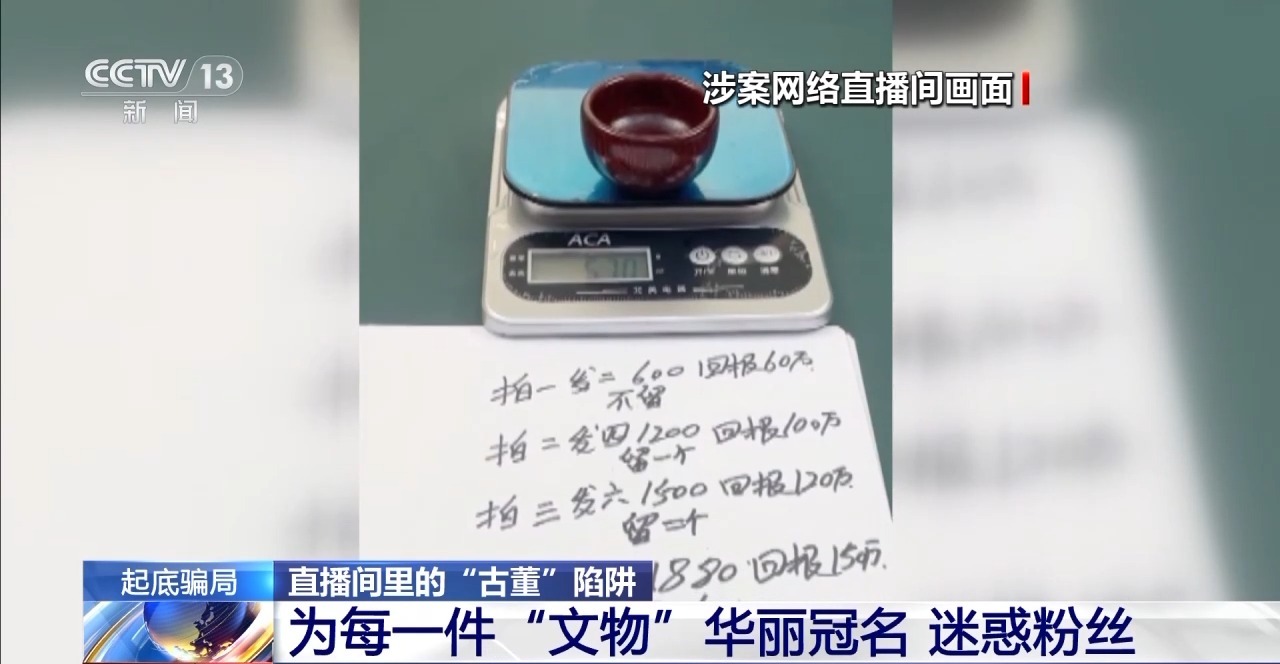 CCTV 13
新闻
涉案网络直播间画面
ACA
拍一发二 600 回报60万
不留
拍二发四 1200 回报100万
留一个
拍三发六 1500 回报120万
留二个
1880 回报150万
起底骗局
直播间里的“古董”陷阱
为每一件“文物”华丽冠名 迷惑粉丝